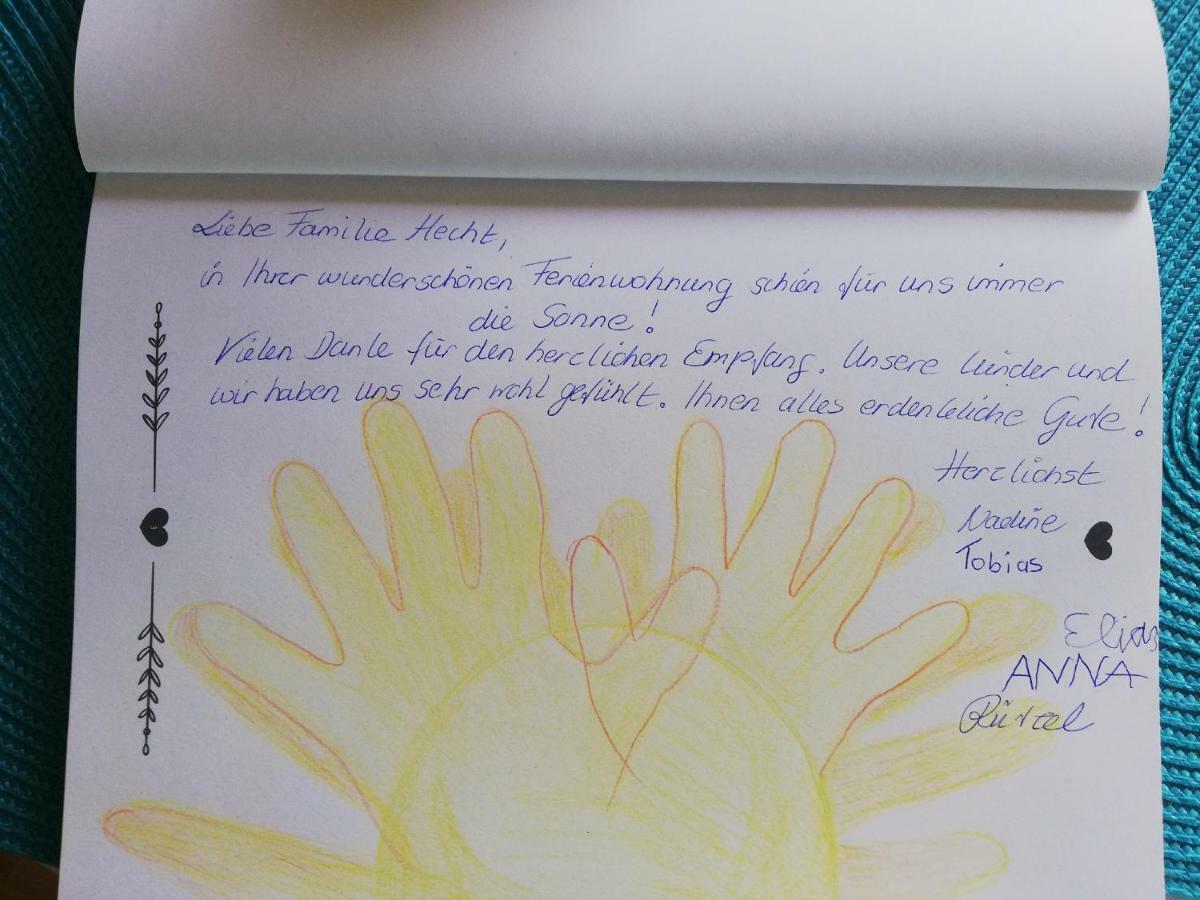 Liebe Familie Hecht,
in Ihrer wunderschönen Ferienwohnung schien für uns immer
die Sonne!
Vielen Danke für den herzlichen Empfang. Unsere Kinder und
wir haben uns sehr wohl gefühlt. Ihnen alles erdenkliche Gute!
Herzlichst
Nadine
Tobias
Elias
ANNA